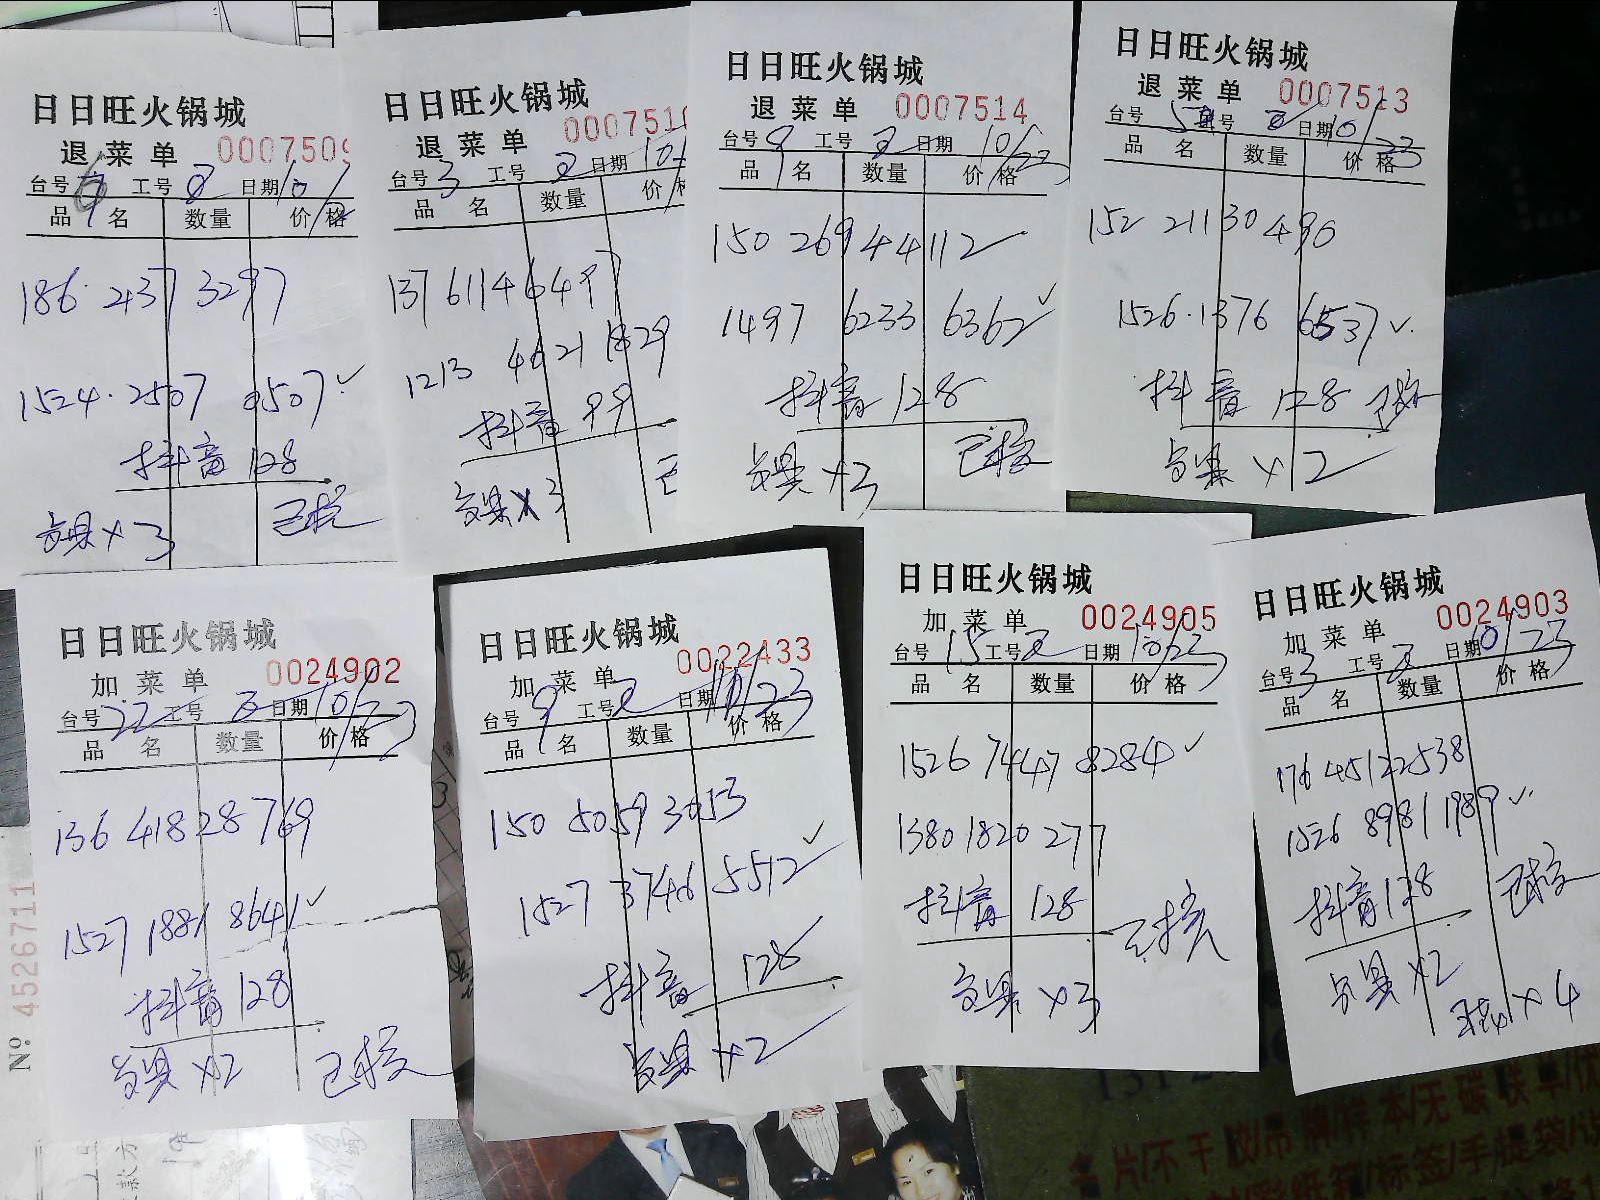 日日旺火锅城
退菜单 000750
台号 9 工号 2 日期 10/
品名 数量 价格
186·237 3297
1524·2507 0507✓
抖音 128
餐具×3 已核
日日旺火锅城
退菜单 000751
台号 3 工号 2 日期 10
品名 数量 价
137 6114 6497
1213 4621 1829
抖音 99
餐具×3 已
日日旺火锅城
退菜单 0007514
台号 9 工号 2 日期 10/23
品名 数量 价格
150 269 44112
1497 6233 6362✓
抖音 128
餐具×3 已核
日日旺火锅城
退菜单 0007513
台号 工号 2 日期 10/23
品名 数量 价格
152 211 30490
1526·1376 6537✓
抖音 128 已核
餐具×2
日日旺火锅城
加菜单 0024902
台号 22 工号 2 日期 10/23
品名 数量 价格
136 418 28769
1527 1881 8641✓
抖音 128
餐具×2 已核
日日旺火锅城
加菜单 0022433
台号 9 工号 2 日期 10/23
品名 数量 价格
150 5059 3053
1527 3746 5512✓
抖音 128
餐具×2
日日旺火锅城
加菜单 0024905
台号 15 工号 2 日期 10/23
品名 数量 价格
1526 7447 8284✓
1380 1820 277
抖音 128
已核
餐具×3
日日旺火锅城
加菜单 0024903
台号 3 工号 2 日期 10/23
品名 数量 价格
176 4512 2538
1526 8981 1989✓
抖音 128 已核
餐具×2
×4
№ 4526711
款方
片/不干胶/吊牌/样本/无碳联单/
/标签/手提袋/